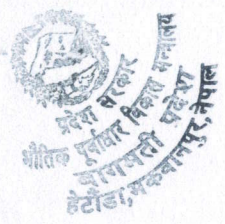 प्रदेश सरकार
भौतिक पूर्वाधार विकास मन्त्रालय
बागमती प्रदेश
हेटौंडा, मकवानपुर, नेपाल